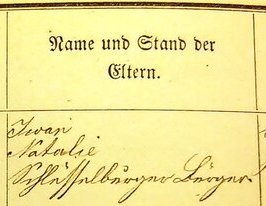 Name und Stand der
Eltern.
Iwan
Natalie
Schlüsselburger Bürger.